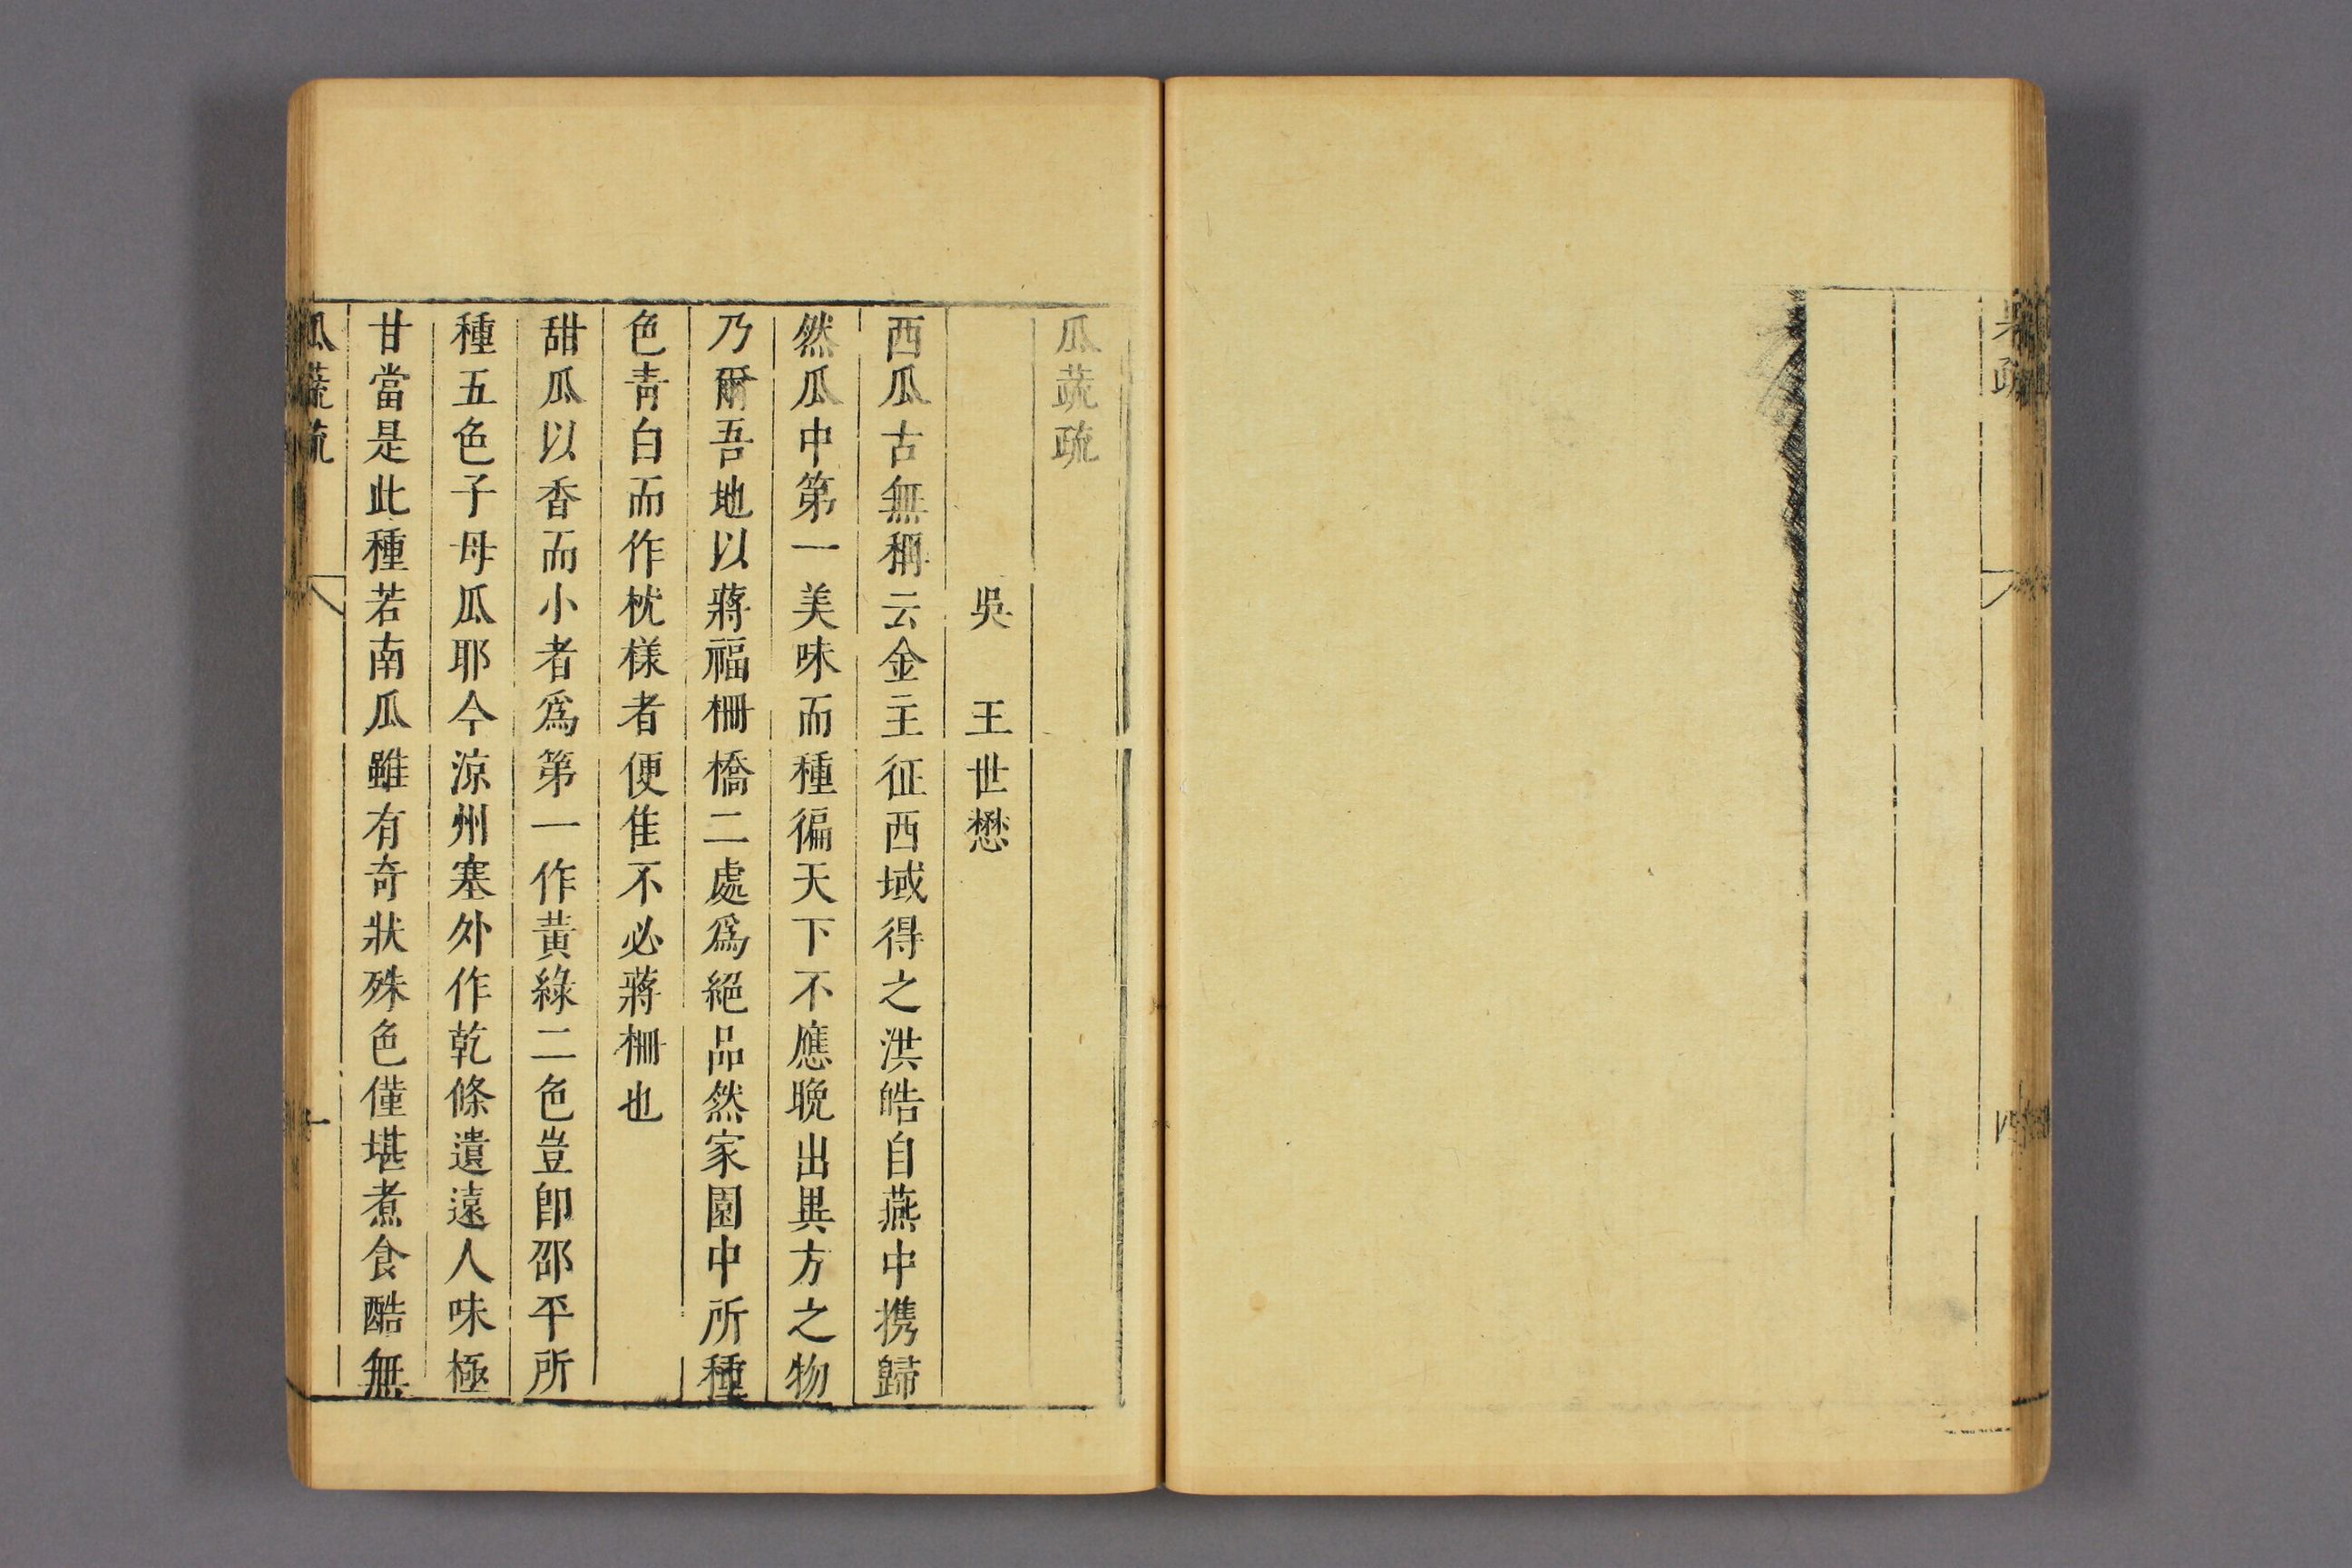 瓜蔬疏
吳 王世懋
西瓜古無稱云金主征西域得之洪皓自燕中携歸
然瓜中第一美味而種徧天下不應晚出異方之物
乃爾吾地以蔣福柵橋二處爲絕品然家園中所種
色青白而作枕樣者便佳不必蔣柵也
甜瓜以香而小者爲第一作黃綠二色豈卽邵平所
種五色子母瓜耶今涼州塞外作乾條遺遠人味極
甘當是此種若南瓜雖有奇狀殊色僅堪煮食酷無
瓜蔬疏 一